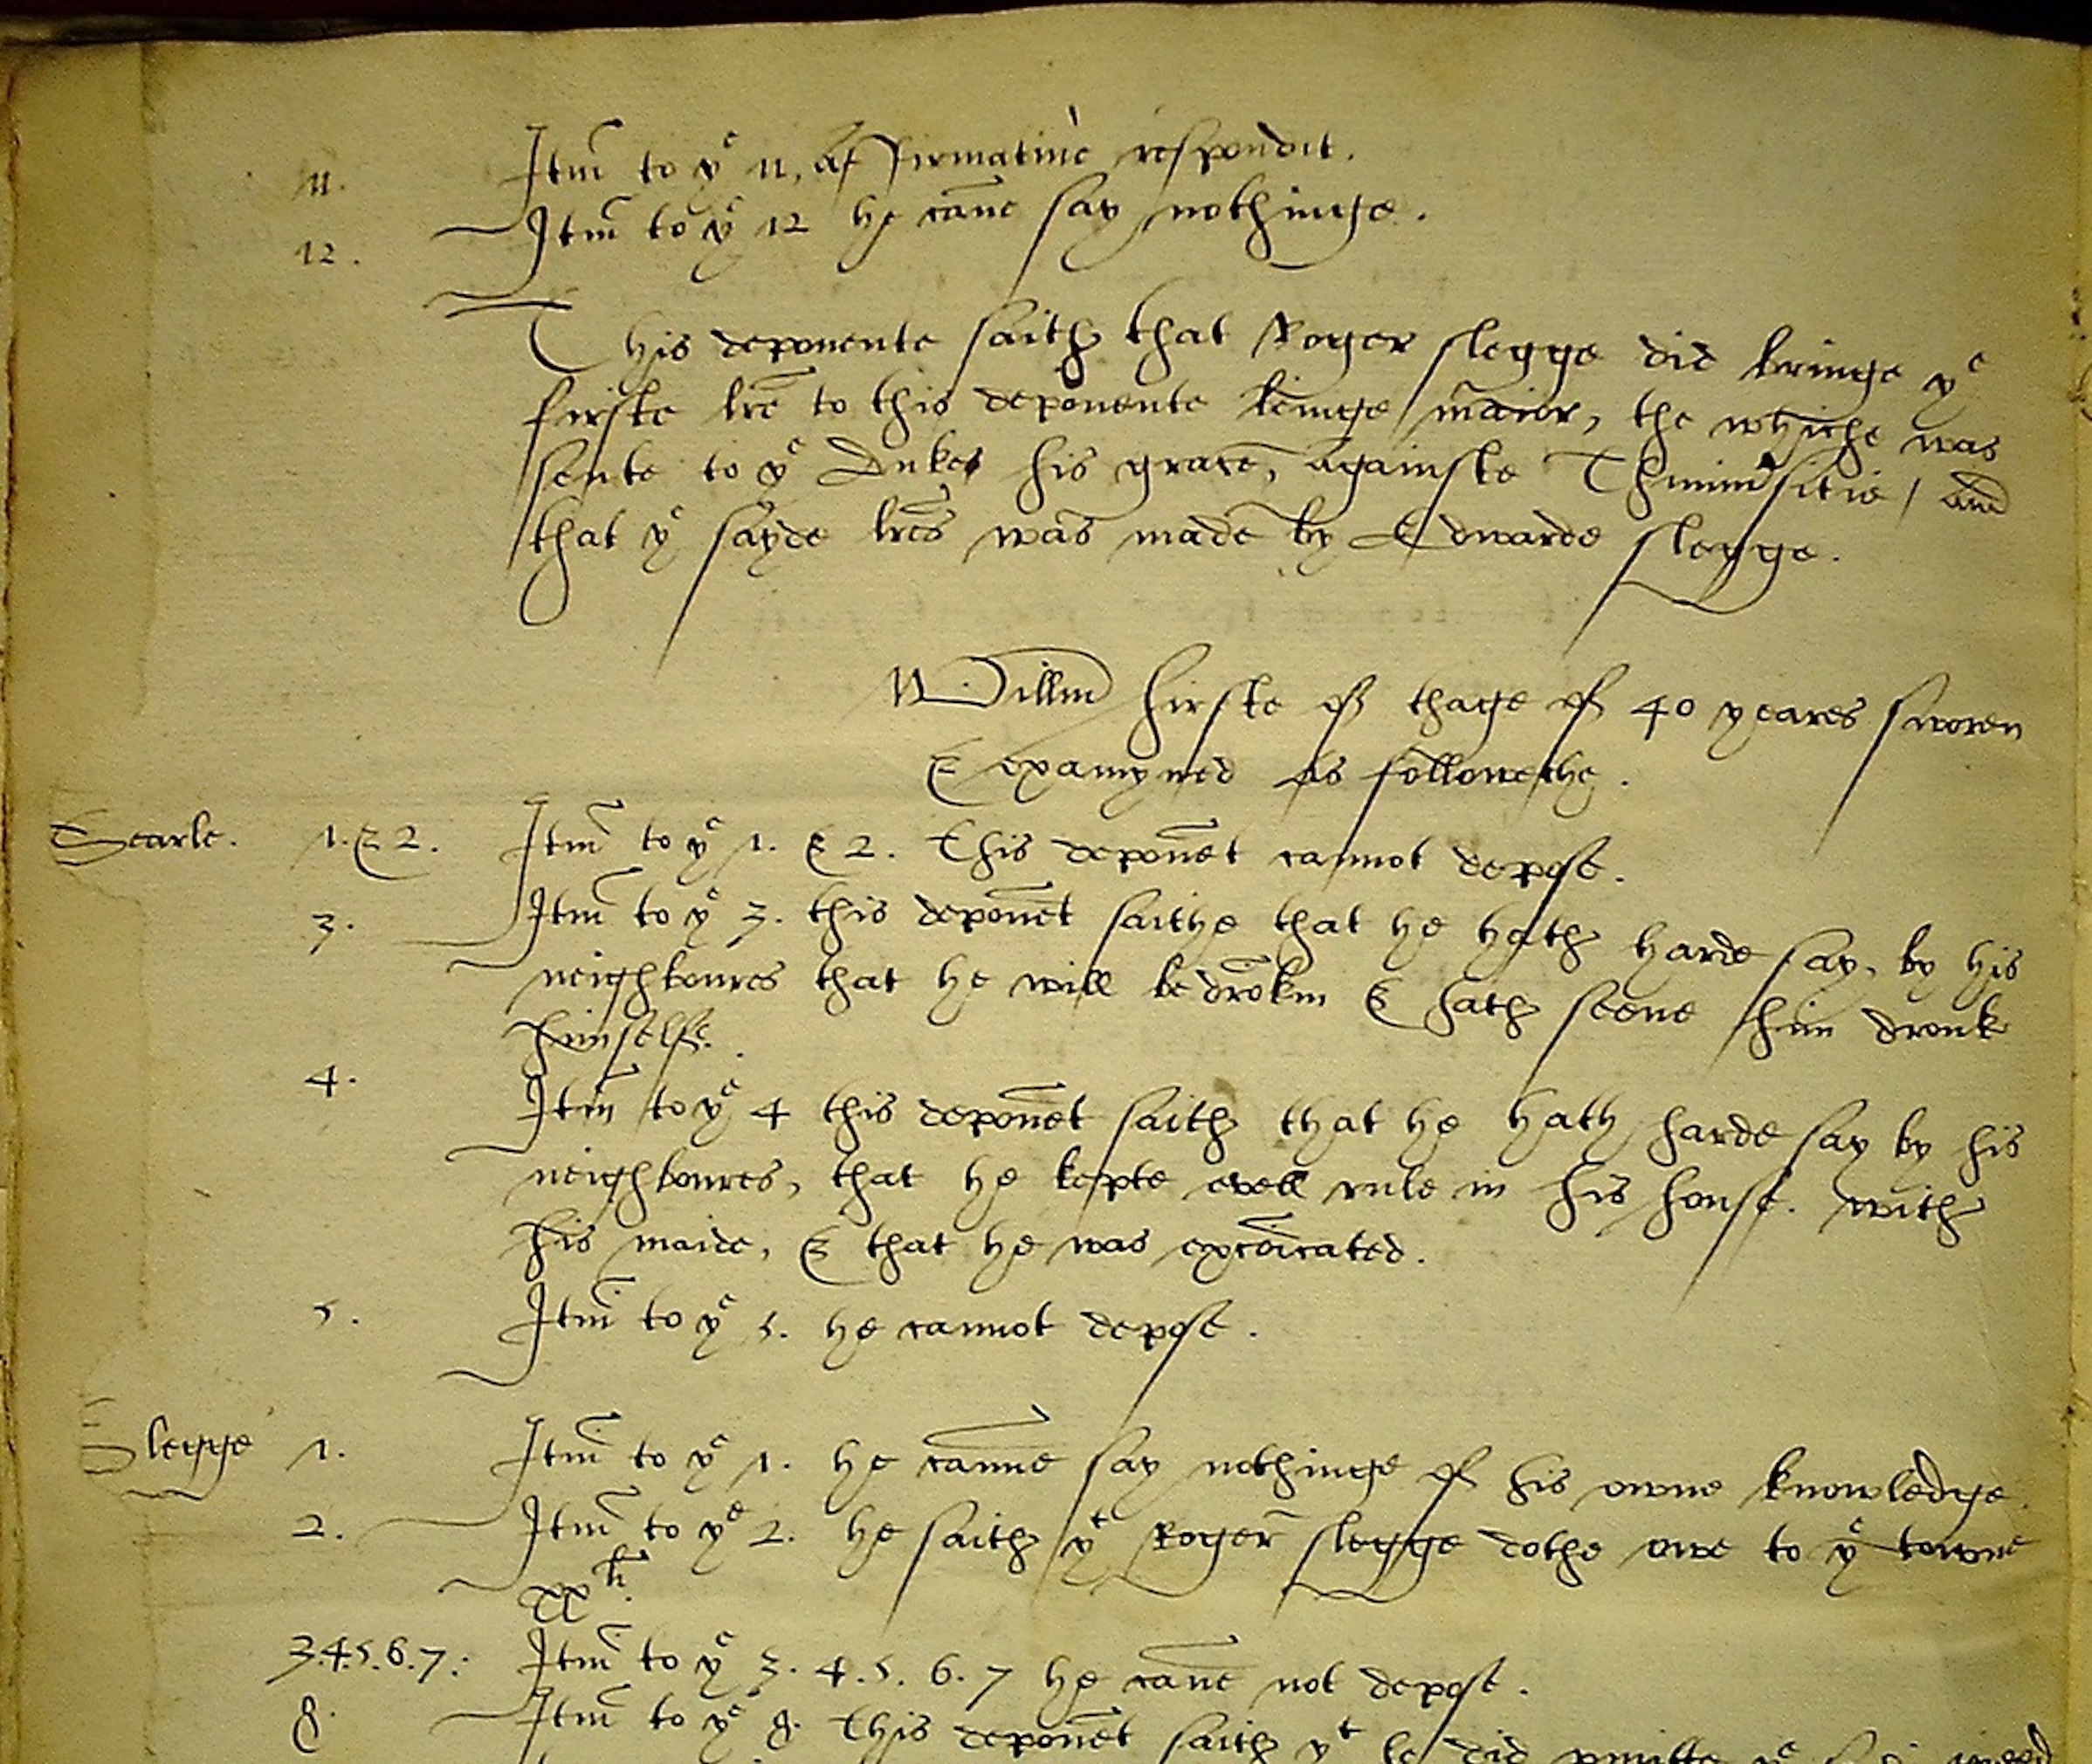 11. Itm to ye 11, affirmative respondit.
12. Itm to ye 12 he cane say nothinge.
This deponente saith that Roger slegge did bringe ye
firste lre to this deponente beinge maior, the whiche was
sente to ye Dukes his grace, againste Thuniversitie / and
that ye sayde lres was made by Edwarde slegge.
Willm hirste of thage of 40 yeares sworen
& examyned as followethe.
Searle. 1. & 2. Itm to ye 1. & 2. this deponet cannot depose.
3. Itm to ye 3. this deponet saithe that he hath harde say, by his
neighboures that he will be dronkin & hath seene him dronk
himselfe.
4. Itm to ye 4 this deponet saith that he hath harde say by his
neighboures, that he kepte evell rule in his house. with
his maide, & that he was excoicated.
5. Itm to ye 5. he cannot depose.
Slegge 1. Itm to ye 1. he canne say nothinge of his owne knowledge.
2. Itm to ye 2. he saith yt Roger slegge dothe owe to ye towne
xxli.
3.4.5.6.7. Itm to ye 3. 4. 5. 6. 7 he cane not depose.
8. Itm to ye 8. this deponet saith yt he did pmitte ye